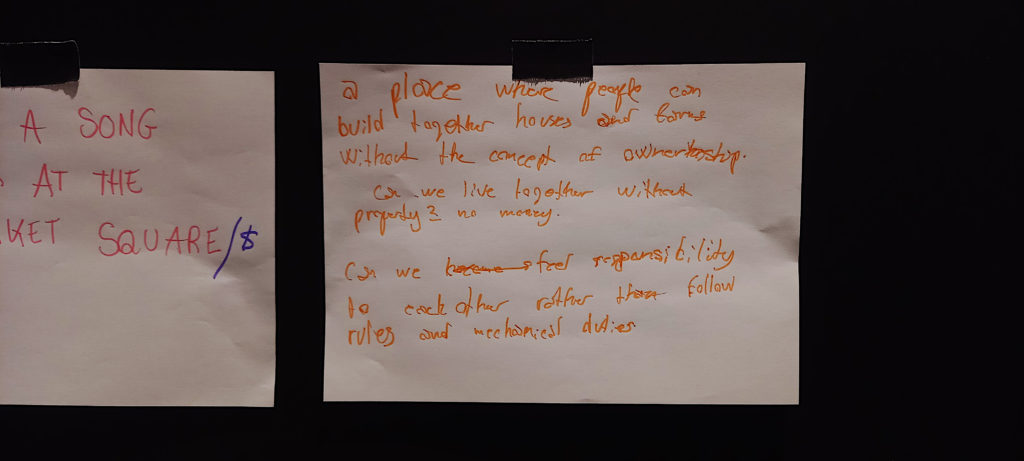 A SONG
AT THE
KET SQUARE/$
a place where people can
build together houses and farms
without the concept of ownership.
can we live together without
property? no money.
Can we feel responsibility
to each other rather than follow
rules and mechanical duties